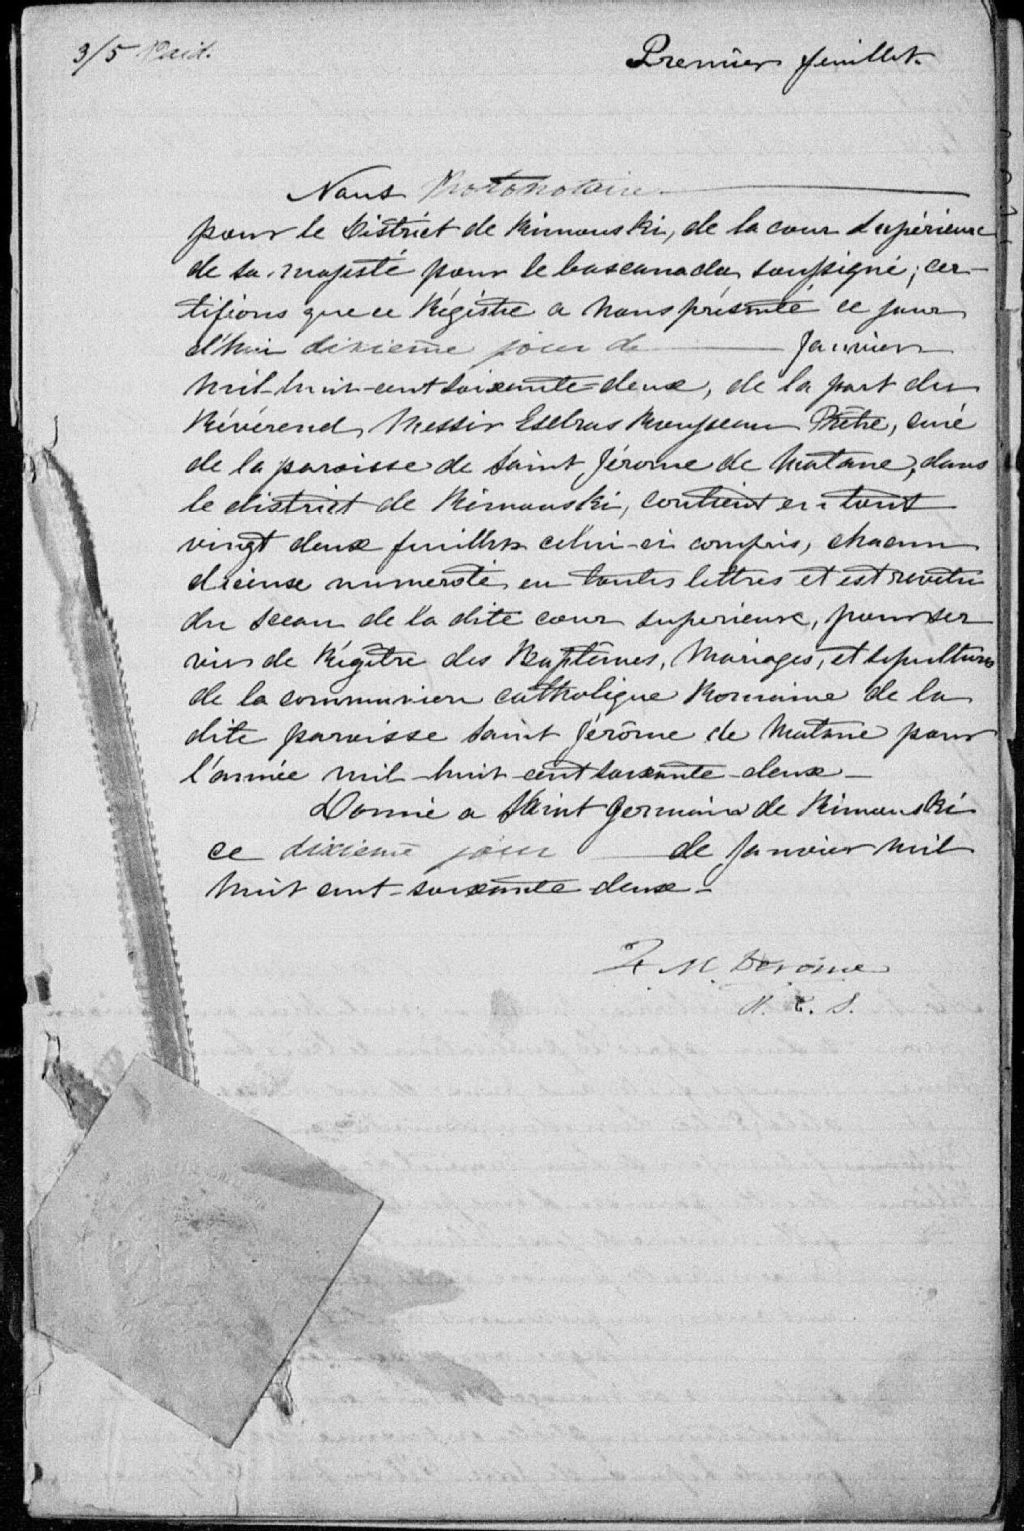 3/5 Paid.
Premier feuillet.
Nous Protonotaire
pour le District de Rimouski, de la cour Supérieure
de sa majesté pour le bas canada, soussigné, cer-
tifions que ce Régistre a nous présenté ce jour
d'hui dixieme jour de Janvier
mil-huit-cent soixante-deux, de la part du
Révérend Messir Esdras Rousseau Prêtre, curé
de la paroisse de Saint Jérome de Matane, dans
le district de Rimouski, contient en tout
vingt deux feuillets celui-ci compris, chacun
d'ceux numeroté en toutes lettres et est revetu
du sceau de la dite cour superieure, pour ser
vir de Régitre des Baptêmes, Mariages, et sepultures
de la communion catholique Romaine de la
dite paroisse Saint Jérôme de Matane pour
l'année mil-huit-cent soixante-deux
Donné a Saint Germain de Rimouski
ce dixieme jour de Janvier mil
huit cent-soixante deux-
F. M. Derome
P. C. S.